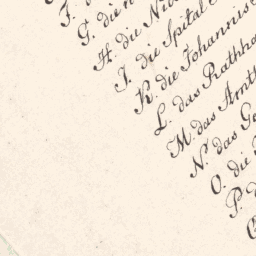 F.
G. die
H. die
I. die Spital
K. die Johannis
L. das Rathha
M. das Amth
N. das
O. die
P.